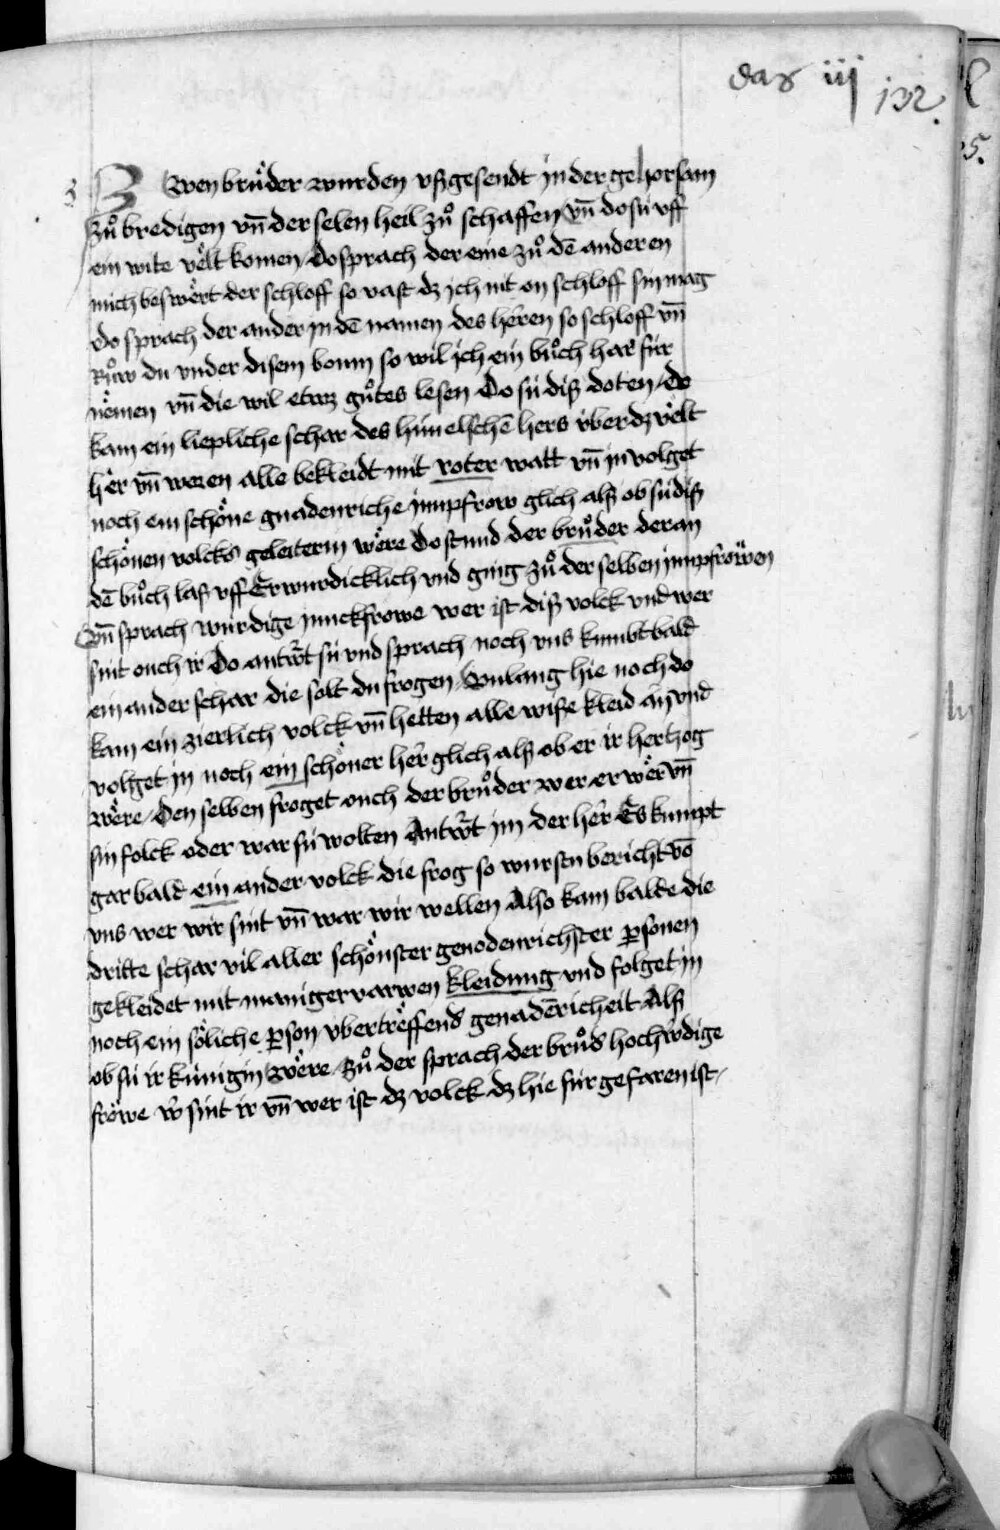 das iij
132.
Zwen bruͦder wurden vßgesendt in der gehorsam
zuͦ bredigen vn̄ der selen heil zuͦ schaffen vn̄ do sü vff
ein wite vëlt komen Do sprach der eine zuͦ dē anderen
mich beswërt der schloff so vast dz ich nit on schloff sin mag
Do sprach der ander in dē namen des heren so schloff vn̄
Ruͦw du vnder disem boum so wil ich ein buͦch har für
nëmen vn̄ die wil etwz guͦtes lesen Do sü diß doten do
kam ein liepliche schar des himelschē hers über dz vëlt
hër vn̄ weren alle bekleidt mit roter watt vn̄ in volget
noch ein schöne gnadenriche jumpfrow glich alß ob sü diß
schönen volcks geleiterin wëre Do stund der bruͦder der an
dē buͦch laß vff Erwurdicklich vnd ging zuͦ der selben jumpfröwen
Vn̄ sprach würdige junckfrowe wer ist diß volck vnd wer
sint ouch ir Do antwrt sü vnd sprach noch vns kumbt bald
ein ander schar die solt du frogen Vnlang hie noch do
kam ein zierlich volck vn̄ hetten alle wiße kleid an vnd
volget in noch ein schöner her glich alß ob er ir hertzog
wëre Den selben froget ouch der bruͦder wer er wër vn̄
sin folck oder war sü wolten Antwrt im der her Es kumpt
gar bald ein ander volck die frog so wurstu bericht vō
vns wer wir sint vn̄ war wir wellen Also kam balde die
dritte schar vil aller schönster genodenrichster ꝑsonen
gekleidet mit maniger varwen kleidung vnd folget in
noch ein söliche ꝑson übertrëffend genadēricheit Alß
ob sü ir künigin wëre zuͦ der sprach der bruͦd hochwrdige
fröwe wr sint ir vn̄ wer ist dz volck dz hie für gefaren ist